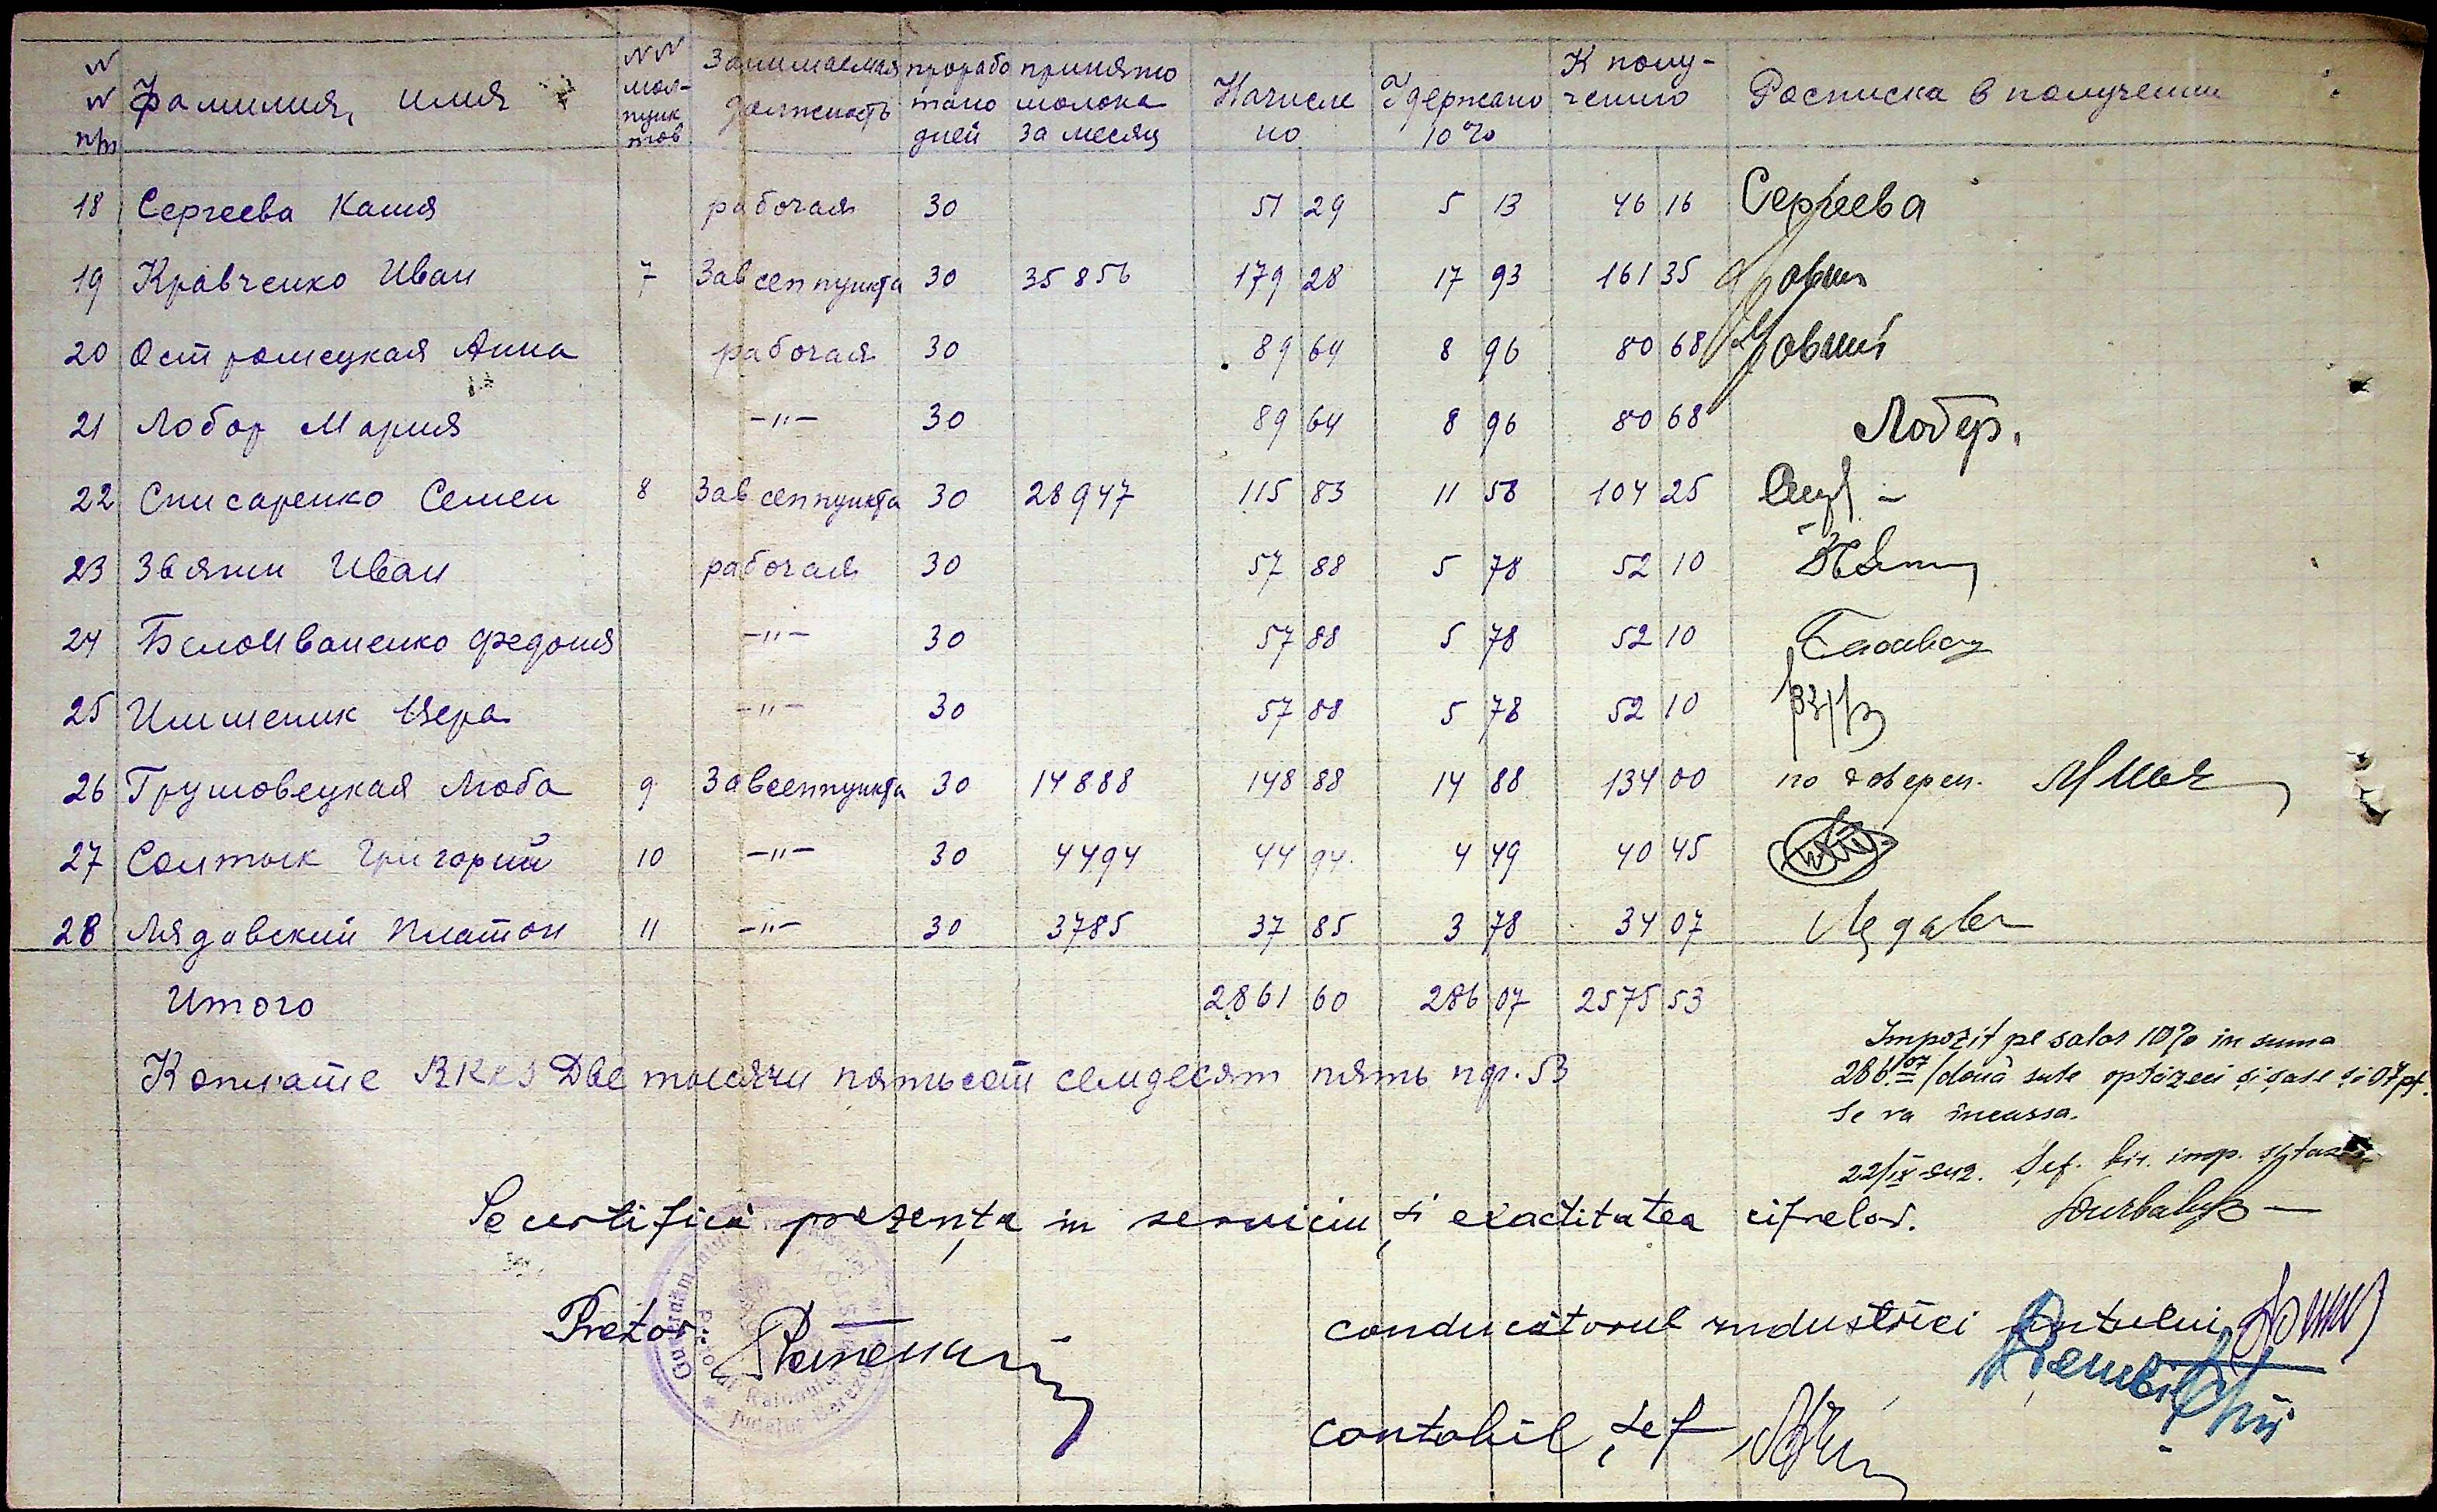 N N п/п Фамилия, имя NN мол-пунктов Занимаемая должность проработано дней принято молока за месяц Начислено Удержано 10% К получению Росписка в получении
18 Сергеева Каля рабочая 30 51 29 5 13 46 16 Сергеева
19 Кравченко Иван 7 Завсеппункта 30 35856 179 28 17 93 161 35
20 Остромецкая Анна рабочая 30 89 64 8 96 80 68
21 Лобор Мария -"- 30 89 64 8 96 80 68 Лобор.
22 Слисаренко Семен 8 Завсеппункта 30 28947 115 83 11 58 104 25
23 Звяги Иван рабочая 30 57 88 5 78 52 10
24 Белоиваненко Федония -"- 30 57 88 5 78 52 10
25 Шишеник Вера -"- 30 57 88 5 78 52 10
26 Грушовецкая Люба 9 Завсеппункта 30 14888 148 88 14 88 134 00 по доверен.
27 Солтык Григорий 10 -"- 30 4494 44 94 4 49 40 45
28 Лядовский Платон 11 -"- 30 3785 37 85 3 78 34 07
Итого 2861 60 286 07 2575 53
К оплате RKKS Две тысячи пятьсот семдесят пять пф. 53
Impozit pe salar 10% in suma
286.07 /două sute optzeci şi şase şi 07 pf.
Se va incassa.
22/IX 942. Şef. bir. imp. şi taxe
Se certifică prezenţa in serviciu şi exactitatea cifrelor.
Pretor:
Guvernământul Transnistriei
Pretura Raionului
Judeţul Berezovca
conducătorul industriei laptelui
contabil şef